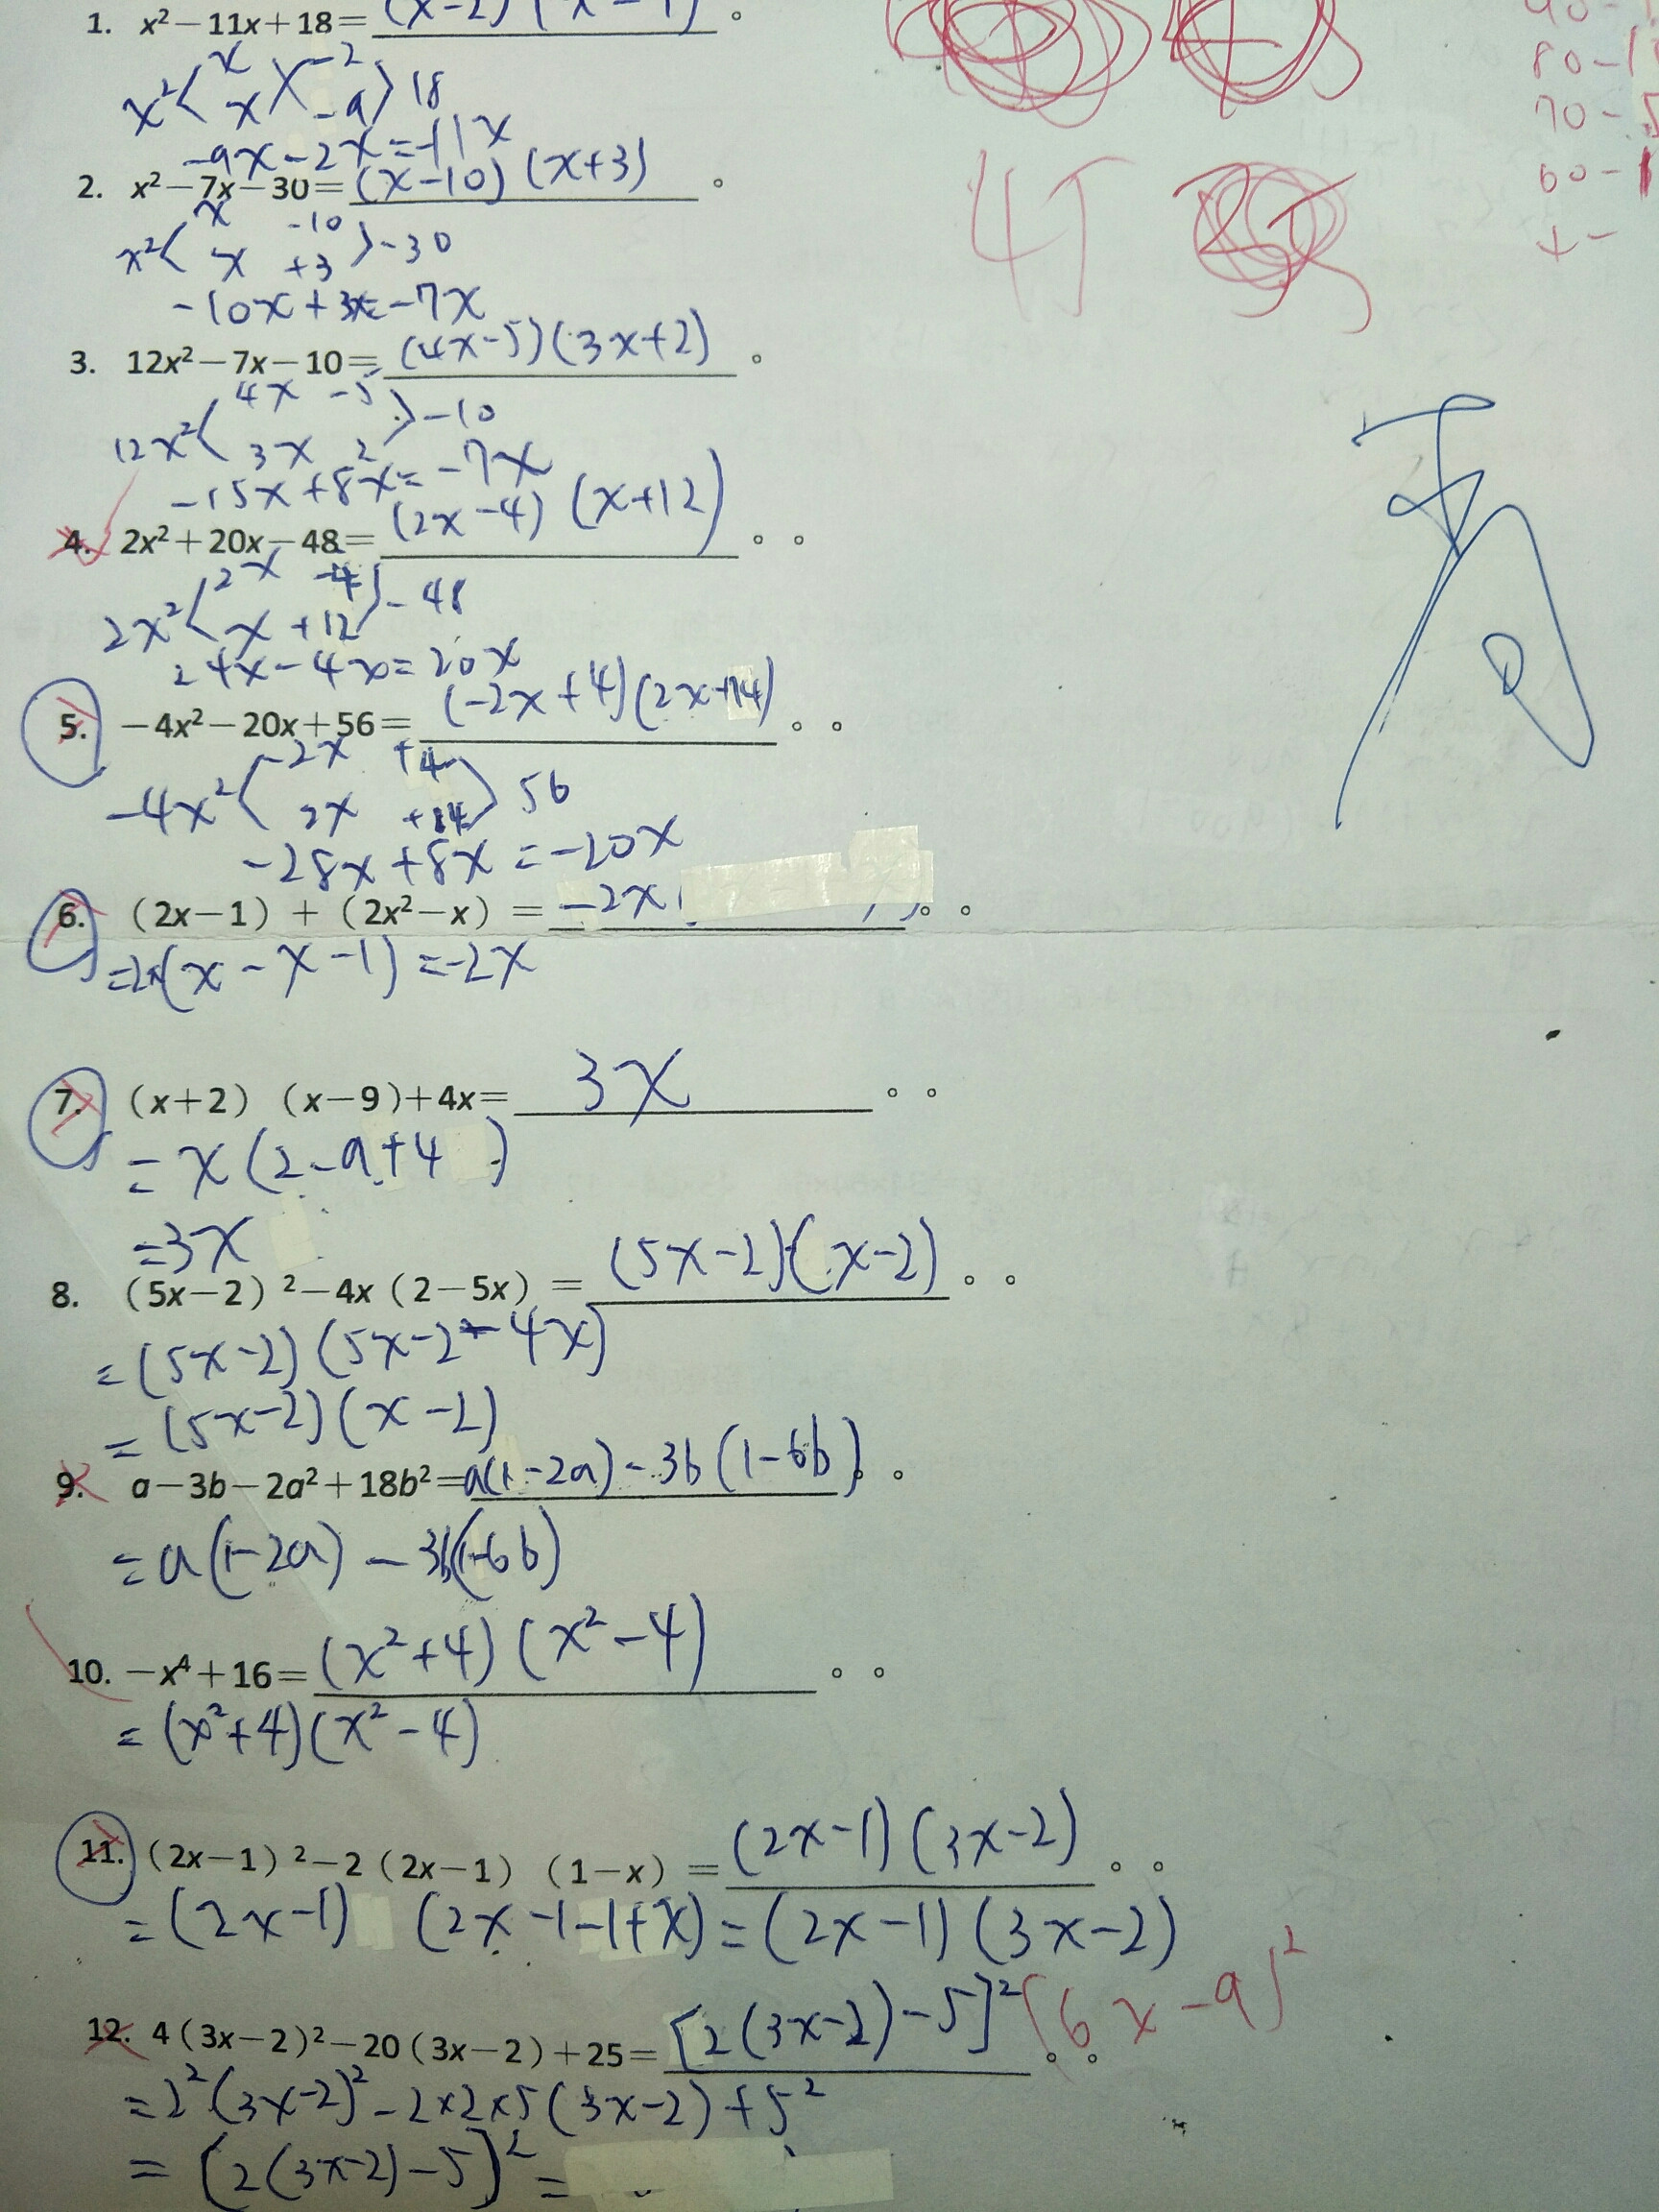 1. x²－11x＋18＝(x-2)(x-9)。
x² x -2 18
x -9
-9x-2x=-11x
2. x²－7x－30＝(x-10)(x+3)。
x² x -10 -30
x +3
-10x+3x=-7x
3. 12x²－7x－10＝(4x-5)(3x+2)。
12x² 4x -5 -10
3x 2
-15x+8x=-7x
4. 2x²＋20x－48＝(2x-4)(x+12)。。
2x² 2x -4 -48
x +12
24x-4x=20x
5. －4x²－20x＋56＝(-2x+4)(2x+14)。。
-4x² -2x +4 56
2x +14
-28x+8x=-20x
6. （2x－1）＋（2x²－x）＝-2x。。
=2x(x-x-1)=-2x
7. （x＋2）（x－9）＋4x＝3x。。
=x(2-9+4)
=3x
8. （5x－2）²－4x（2－5x）＝(5x-2)(x-2)。。
=(5x-2)(5x-2-4x)
=(5x-2)(x-2)
9. a－3b－2a²＋18b²＝a(1-2a)-3b(1-6b)。。
=a(1-2a)-3b(1-6b)
10. －x⁴＋16＝(x²+4)(x²-4)。。
=(x²+4)(x²-4)
11. （2x－1）²－2（2x－1）（1－x）＝(2x-1)(3x-2)。。
=(2x-1)(2x-1-1+x)=(2x-1)(3x-2)
12. 4（3x－2）²－20（3x－2）＋25＝[2(3x-2)-5]² (6x-9)²。。
=2²(3x-2)²-2×2×5(3x-2)+5²
=[2(3x-2)-5]²=
80-
70-5
60-1